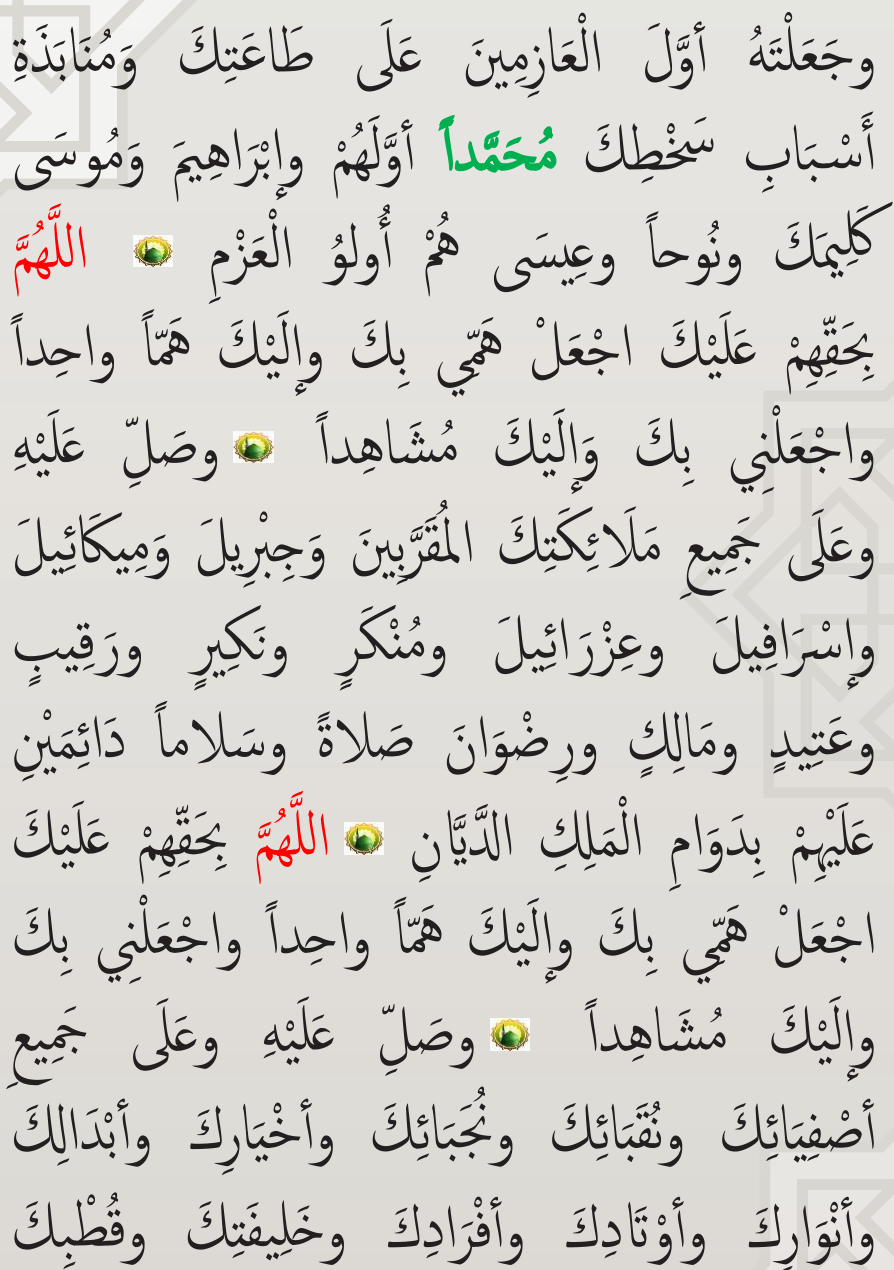 وجَعَلْتَهُ أوَّلَ الْعَازِمِينَ عَلَى طَاعَتِكَ وَمُنَابَذَةِ
أَسْبَابِ سَخْطِكَ مُحَمَّداً أوَّلَهُمْ وإبْرَاهِيمَ وَمُوسَى
كَلِيمَكَ ونُوحاً وعِيسَى هُمْ أُولوُ الْعَزْمِ اللَّهُمَّ
بِحَقِّهِمْ عَلَيْكَ اجْعَلْ هَمِّي بِكَ وإلَيْكَ هَمّاً واحِداً
واجْعَلْنِي بِكَ وَإلَيْكَ مُشَاهِداً وصَلِّ عَلَيْهِ
وعَلَى جَمِيعِ مَلَائِكَتِكَ المُقَرَّبِينَ وَجِبْرِيلَ وَمِيكَائِيلَ
وإسْرَافِيلَ وعِزْرَائِيلَ ومُنْكَرٍ ونَكِيرٍ ورَقِيبٍ
وعَتِيدٍ ومَالِكٍ ورِضْوَانَ صَلاةً وسَلاماً دَائِمَيْنِ
عَلَيْهِمْ بِدَوَامِ الْمَلِكِ الدَّيَّانِ اللَّهُمَّ بِحَقِّهِمْ عَلَيْكَ
اجْعَلْ هَمِّي بِكَ وإلَيْكَ هَمّاً واحِداً واجْعَلْنِي بِكَ
وإلَيْكَ مُشَاهِداً وصَلِّ عَلَيْهِ وعَلَى جَمِيعِ
أصْفِيَائِكَ ونُقَبَائِكَ ونُجَبَائِكَ وأخْيَارِكَ وأبْدَالِكَ
وأنْوَارِكَ وأوْتَادِكَ وأفْرَادِكَ وخَلِيفَتِكَ وقُطْبِكَ